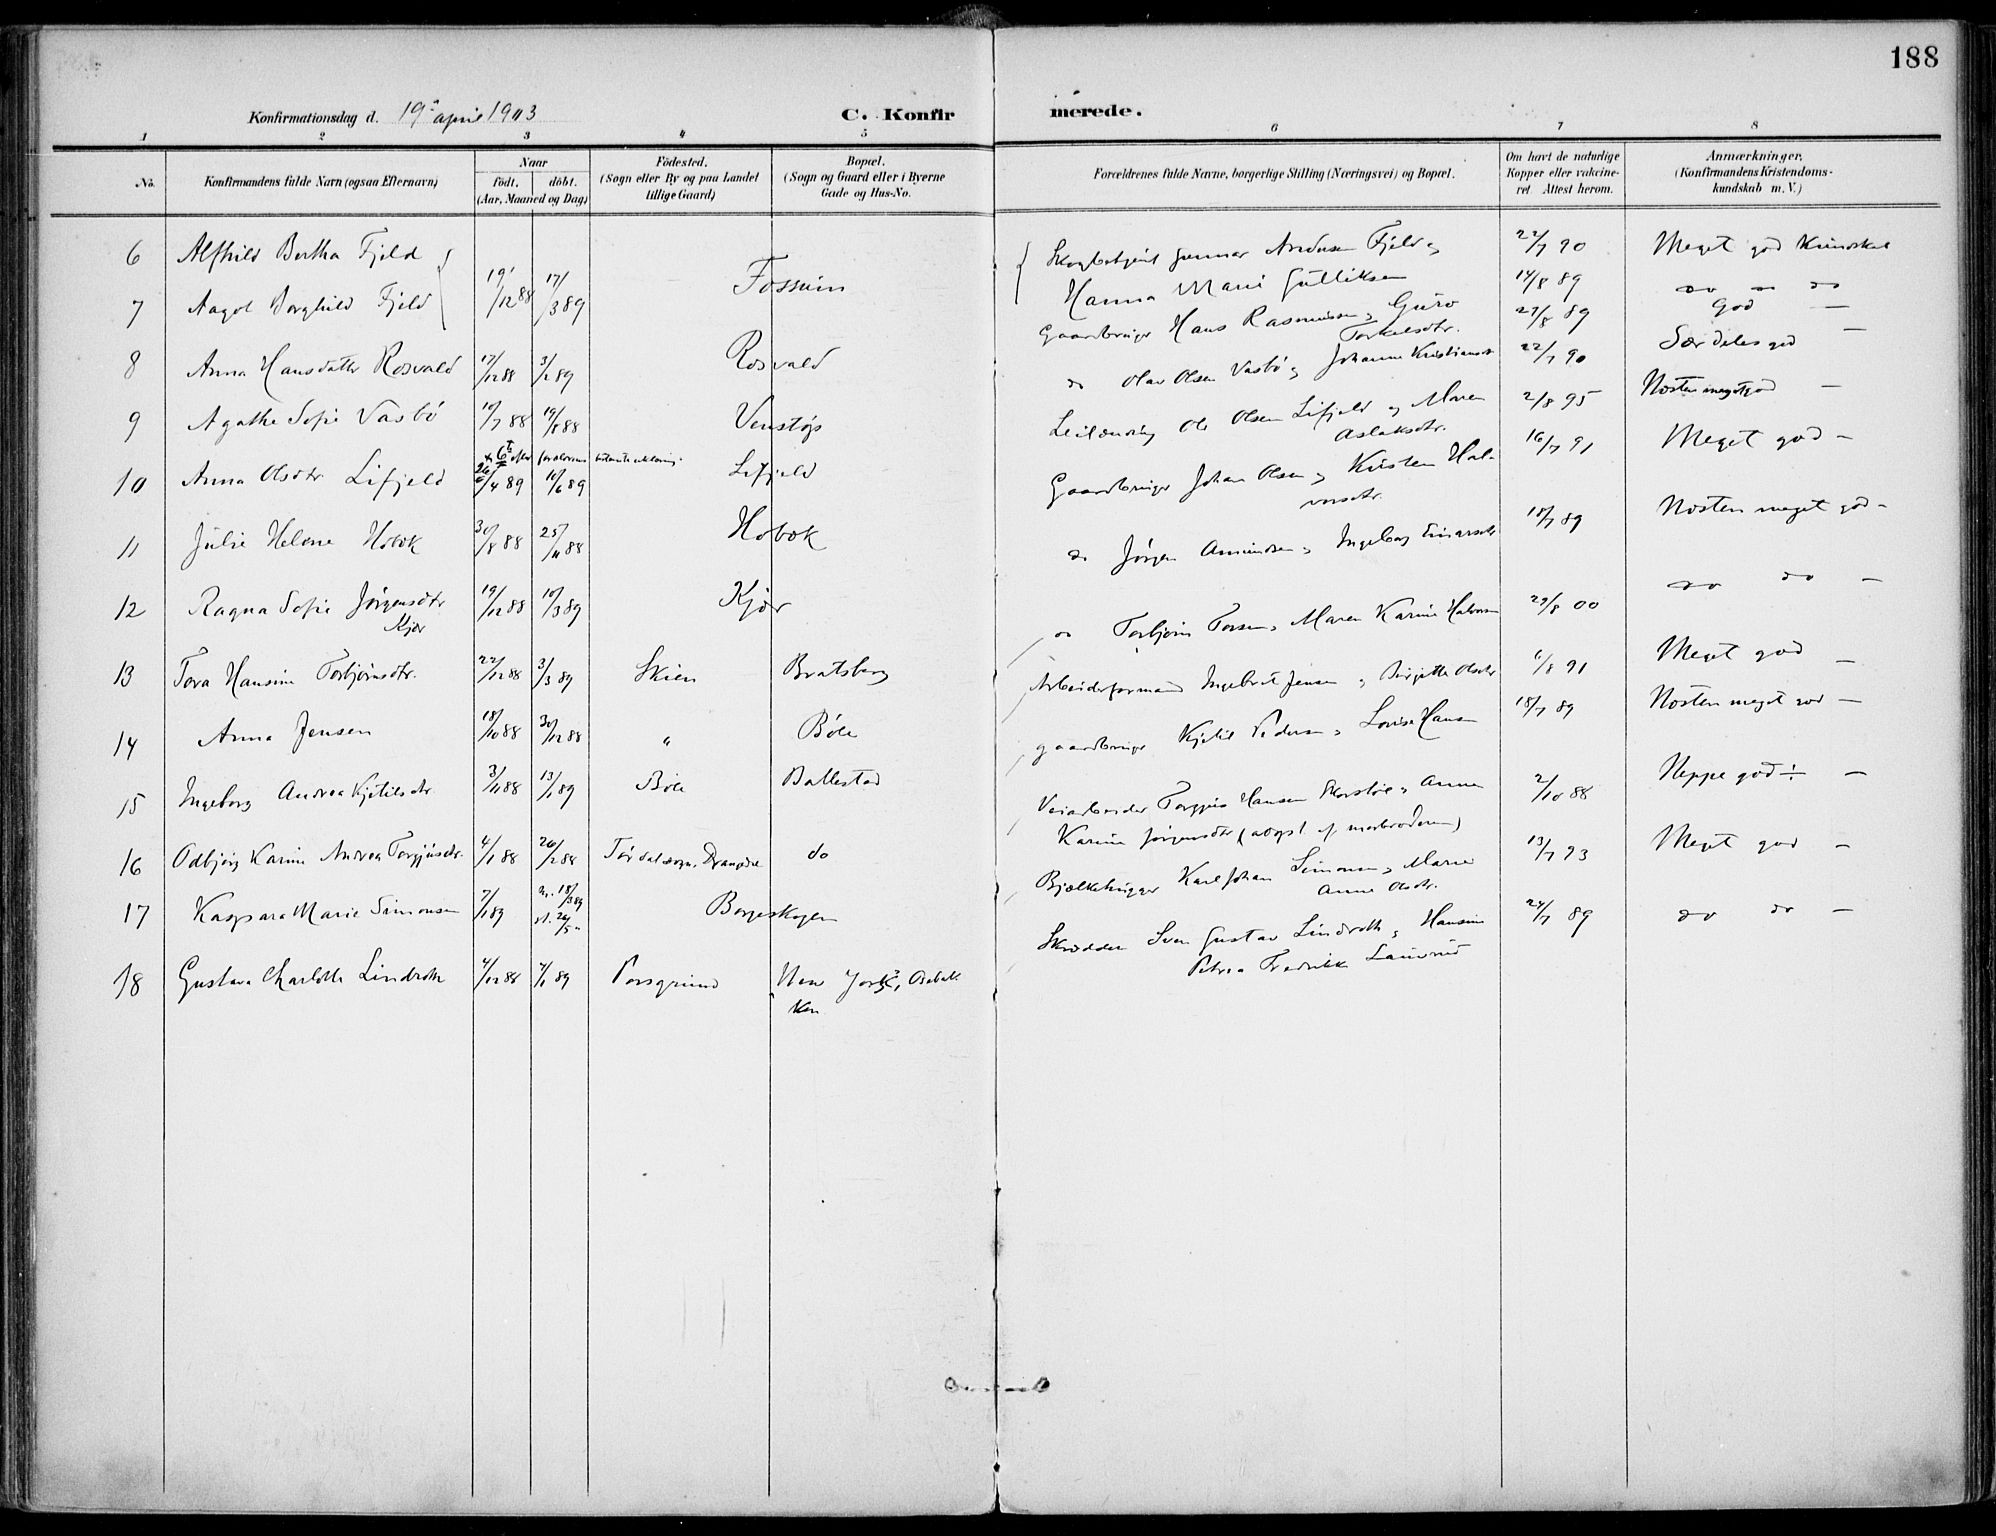 188
Konfirmationsdag d. 19 april 1903
C. Konfir merede.
1 2 3 4 5 6 7 8
No. Konfirmandens fulde Navn (ogsaa Efternavn) Naar födt. döbt. (Aar, Maaned og Dag)
Födested. (Sogn eller By og paa Landet tillige Gaard)
Bopæl. (Sogn og Gaard eller i Byerne Gade og Hus-No.
Forældrenes fulde Navne, borgerlige Stilling (Næringsvei) og Bopæl.
Om havt de naturlige Kopper eller vakcineret. Attest herom.
Anmærkninger. (Konfirmandens Kristendomskundskab m. V.)
6 Alfhild Bertha Fjeld
7 Aagot Borghild Fjeld 19/12 88 17/3 89 Fossum
Gunnar Fjeld og
Hanna Marie Gulliksen
22/7 90 Meget god Kundskab
14/8 89 do do
8 Anna Hansdatter Rosvald 17/12 88 3/2 89 Rosvald
Gaardbruger Hans Rasmussen og Guro
Torkelsdtr.
27/8 89 God —
9 Agathe Sofie Vasbö 10/7 88 19/8 88 Venstøp
do Olav Olsen Vasbö og Johanne
22/7 90 Særdeles god —
10 Anna Olsdtr Lifjeld 26/4 89 10/6 89 Lifjeld
Leilænding Ole Olsen Lifjeld og Maren
Aslaksdtr.
2/8 95 Næsten meget god —
11 Julie Helene Hobæk 30/8 88 25/11 88 Hobæk
Gaardbruger Johan Olsen og Kirsten Hal-
vorsdtr.
16/7 91 Meget god —
12 Ragna Sofie Jørgensdtr 19/12 88 10/3 89 Kjær
Kjær
do Jørgen Amundsen og Ingeborg Einarsdtr
18/7 89 Næsten meget god —
13 Tora Hansine Torbjørnsdtr. 22/12 88 3/3 89 Skien Bratsberg
do Torbjørn Maren Karine
29/8 00 do do —
14 Anna Jensen 18/10 88 30/12 88 " Böle
Arbeiderformand Ingebret Jensen og Birgitte Olsdtr
6/8 91 Meget god —
15 Ingeborg Andrea Kjetilsdtr. 3/11 88 13/1 89 Böle Ballestad
gaardbruger Kjetil Pedersen og Lovise Hansen
18/7 89 Næsten meget god —
16 Odbjørg Karine Andrea Torgjusdtr. 4/1 88 26/2 88 Tørdal sogn, Drangedal do
Veiarbeider Torgjus Hansen og Anne
Karine Jørgensdtr (adopt. af morbroderen)
2/10 88 Neppe god ÷ —
17 Kaspara Marie Simonsen 7/1 89 18/3 89 26/5 Borgeskogen
Bjælkehugger Karl Johan Simonsen og Maria
Anne Olsdtr.
13/7 93 Meget god —
18 Gustava Charlotte Lindroth 4/12 88 4/1 89 Porsgrund New York, Osebak-
ken
Skrædder Sven Gustav Lindroth og Hansine
Petrea Fredrikke
24/7 89 do do —